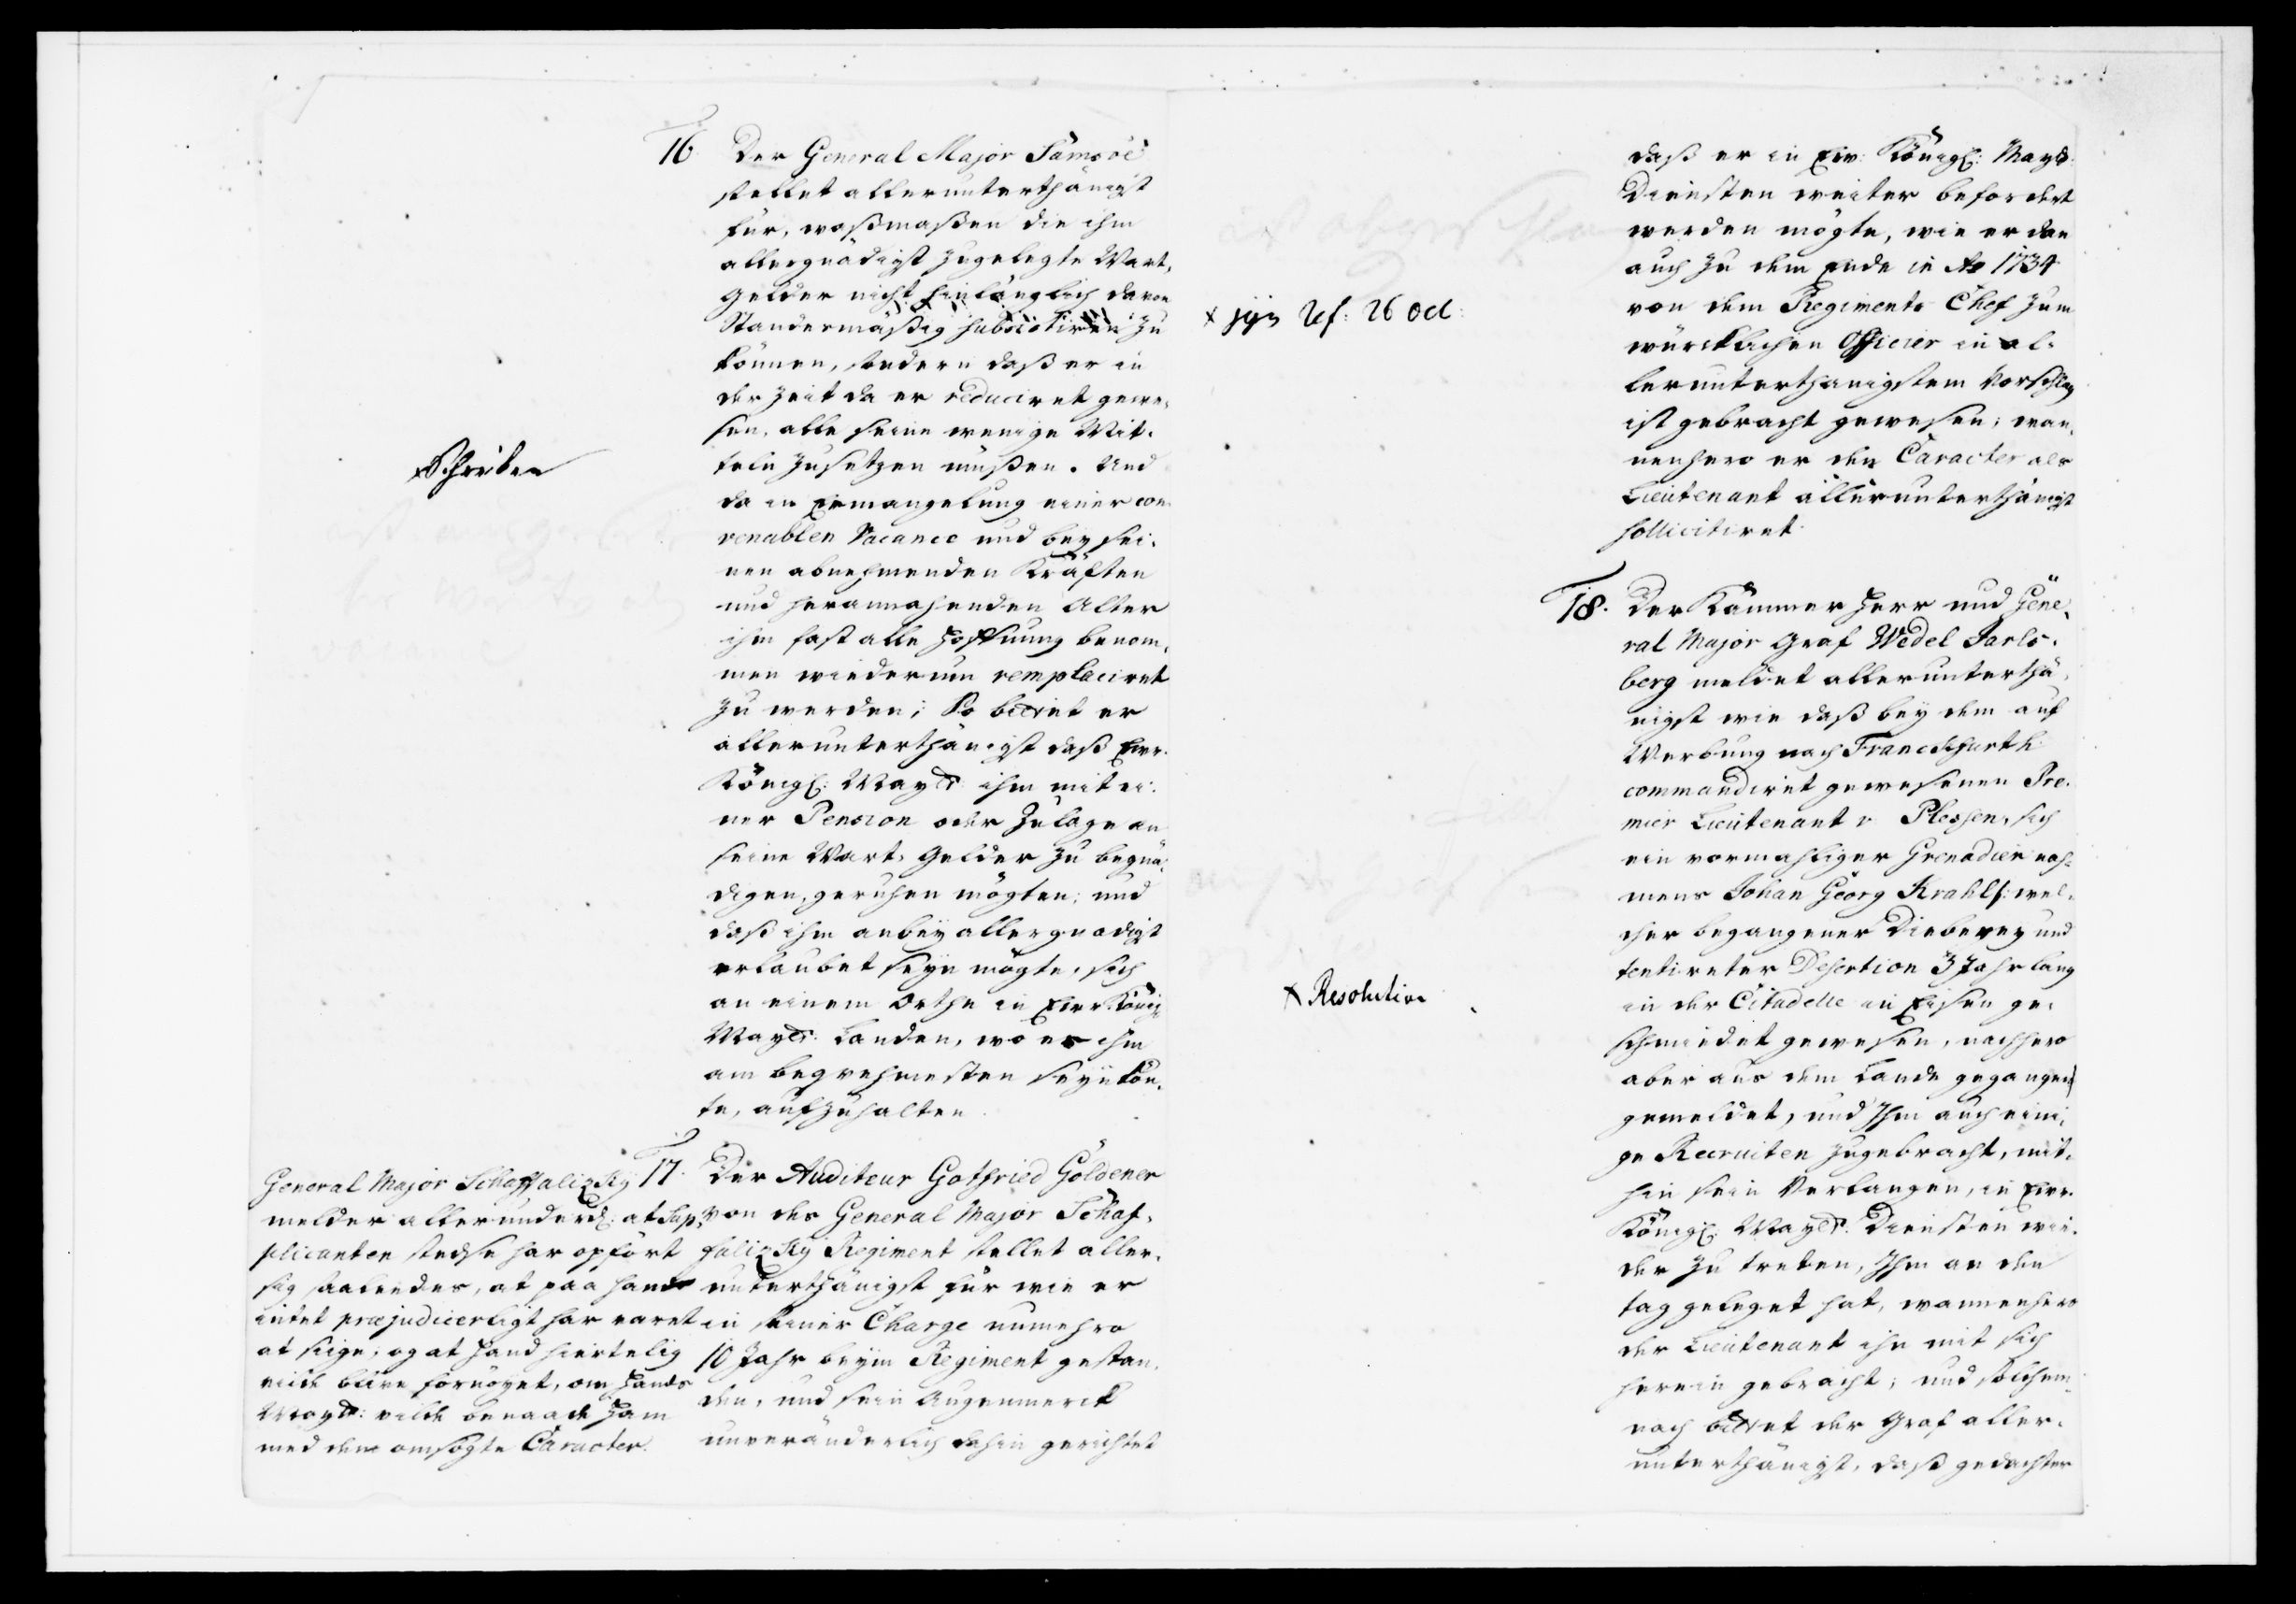 16. Der General Major Samsöe
stellet allerunterthänigst
für, waßmaßen die ihm
allergnädigst zugelegte Wart,
Gelder nicht hinlänglich davon
Standesmäßig subsistiren zu
können, sondern daß er in
der Zeit da er reduciret gewe,
sen, alle seine wenige Mit,
teln zusetzen müßen. Und
da in Ermangelung einer con
venablen Vacance und bey sei,
nen abnehmenden Kräften
und herannahenden Alter
ihm fast alle Hoffnung benom,
men wiederum remplaciret
zu werden; So bittet er
allerunterthänigst daß Ewr.
Königl: Mayt: ihm mit ei,
ner Pension oder Zulage an
seine Wart, Gelder zu begnä,
digen, geruhen mögten; und
daß ihm anbey allergnädigst
erlaubet seyn mögte, sich
an einem Orthe in Ewr. Königl
Mayts: Landen, wo es ihm
am beqvehmesten seyn kön,
te, aufzuhalten.
Schriben
General Major Schaffalizky
melder allerunderd: at Sup,
plicanten stedse har opført
sig saaledes, at paa ham
intet præjudicerligt har været
at sige; og at hand hiertelig
vilde blive fornøyet, om Hands
Mayts: vilde benaade ham
med den ansøgte Caracter.
17. Der Auditeur Gotfried Göldener
von des General Major Schaf,
falizky Regiment stellet aller,
unterthänigst für wie er
in seiner Charge numehro
10 Jahr beym Regiment gestan,
den, und sein Augenmerck
unveränderlich dahin gerichtet
daß er in Ew: Königl: Mayts:
Diensten weiter befordert
werden mögte, wie er dan
auch zu dem Ende in Ao 1734
von dem Regiments Chef zum
würcklichen Officier in al,
lerunterthänigstem Vorschlag
ist gebracht gewesen; wan,
nenhero er den Caracter als
Lieutenant allerunterthänigst
sollicitiret.
x ref: 26 Oct:
18. Der Kammer Herr und Gene,
ral Major Graf Wedel Jarls,
berg meldet allerunterthä,
nigst wie daß bey dem auf
Werbung nach Franckfurth
commandiret gewesenen Pre,
mier Lieutenant v. Plessen, sich
ein vormahliger Grenadier nah,
mens Johan Georg Krahl /: wel,
cher begangener Dieberey und
tentireter Desertion 3 Jahr lang
in der Citadelle in Eisen ge,
schmiedet gewesen, nachhero
aber aus dem Lande gegangen
gemeldet, und Ihm auch eini,
ge Recruiten zugebracht, mit,
hin sein Verlangen, in Ewr.
Königl: Mayts: Diensten wie,
der zu treten, Ihm an den
tag geleget hat, wannenhero
der Lieutenant ihn mit sich
herein gebracht; und solchem,
nach bittet der Graf aller,
unterthänigst, daß gedachter
x Resolution